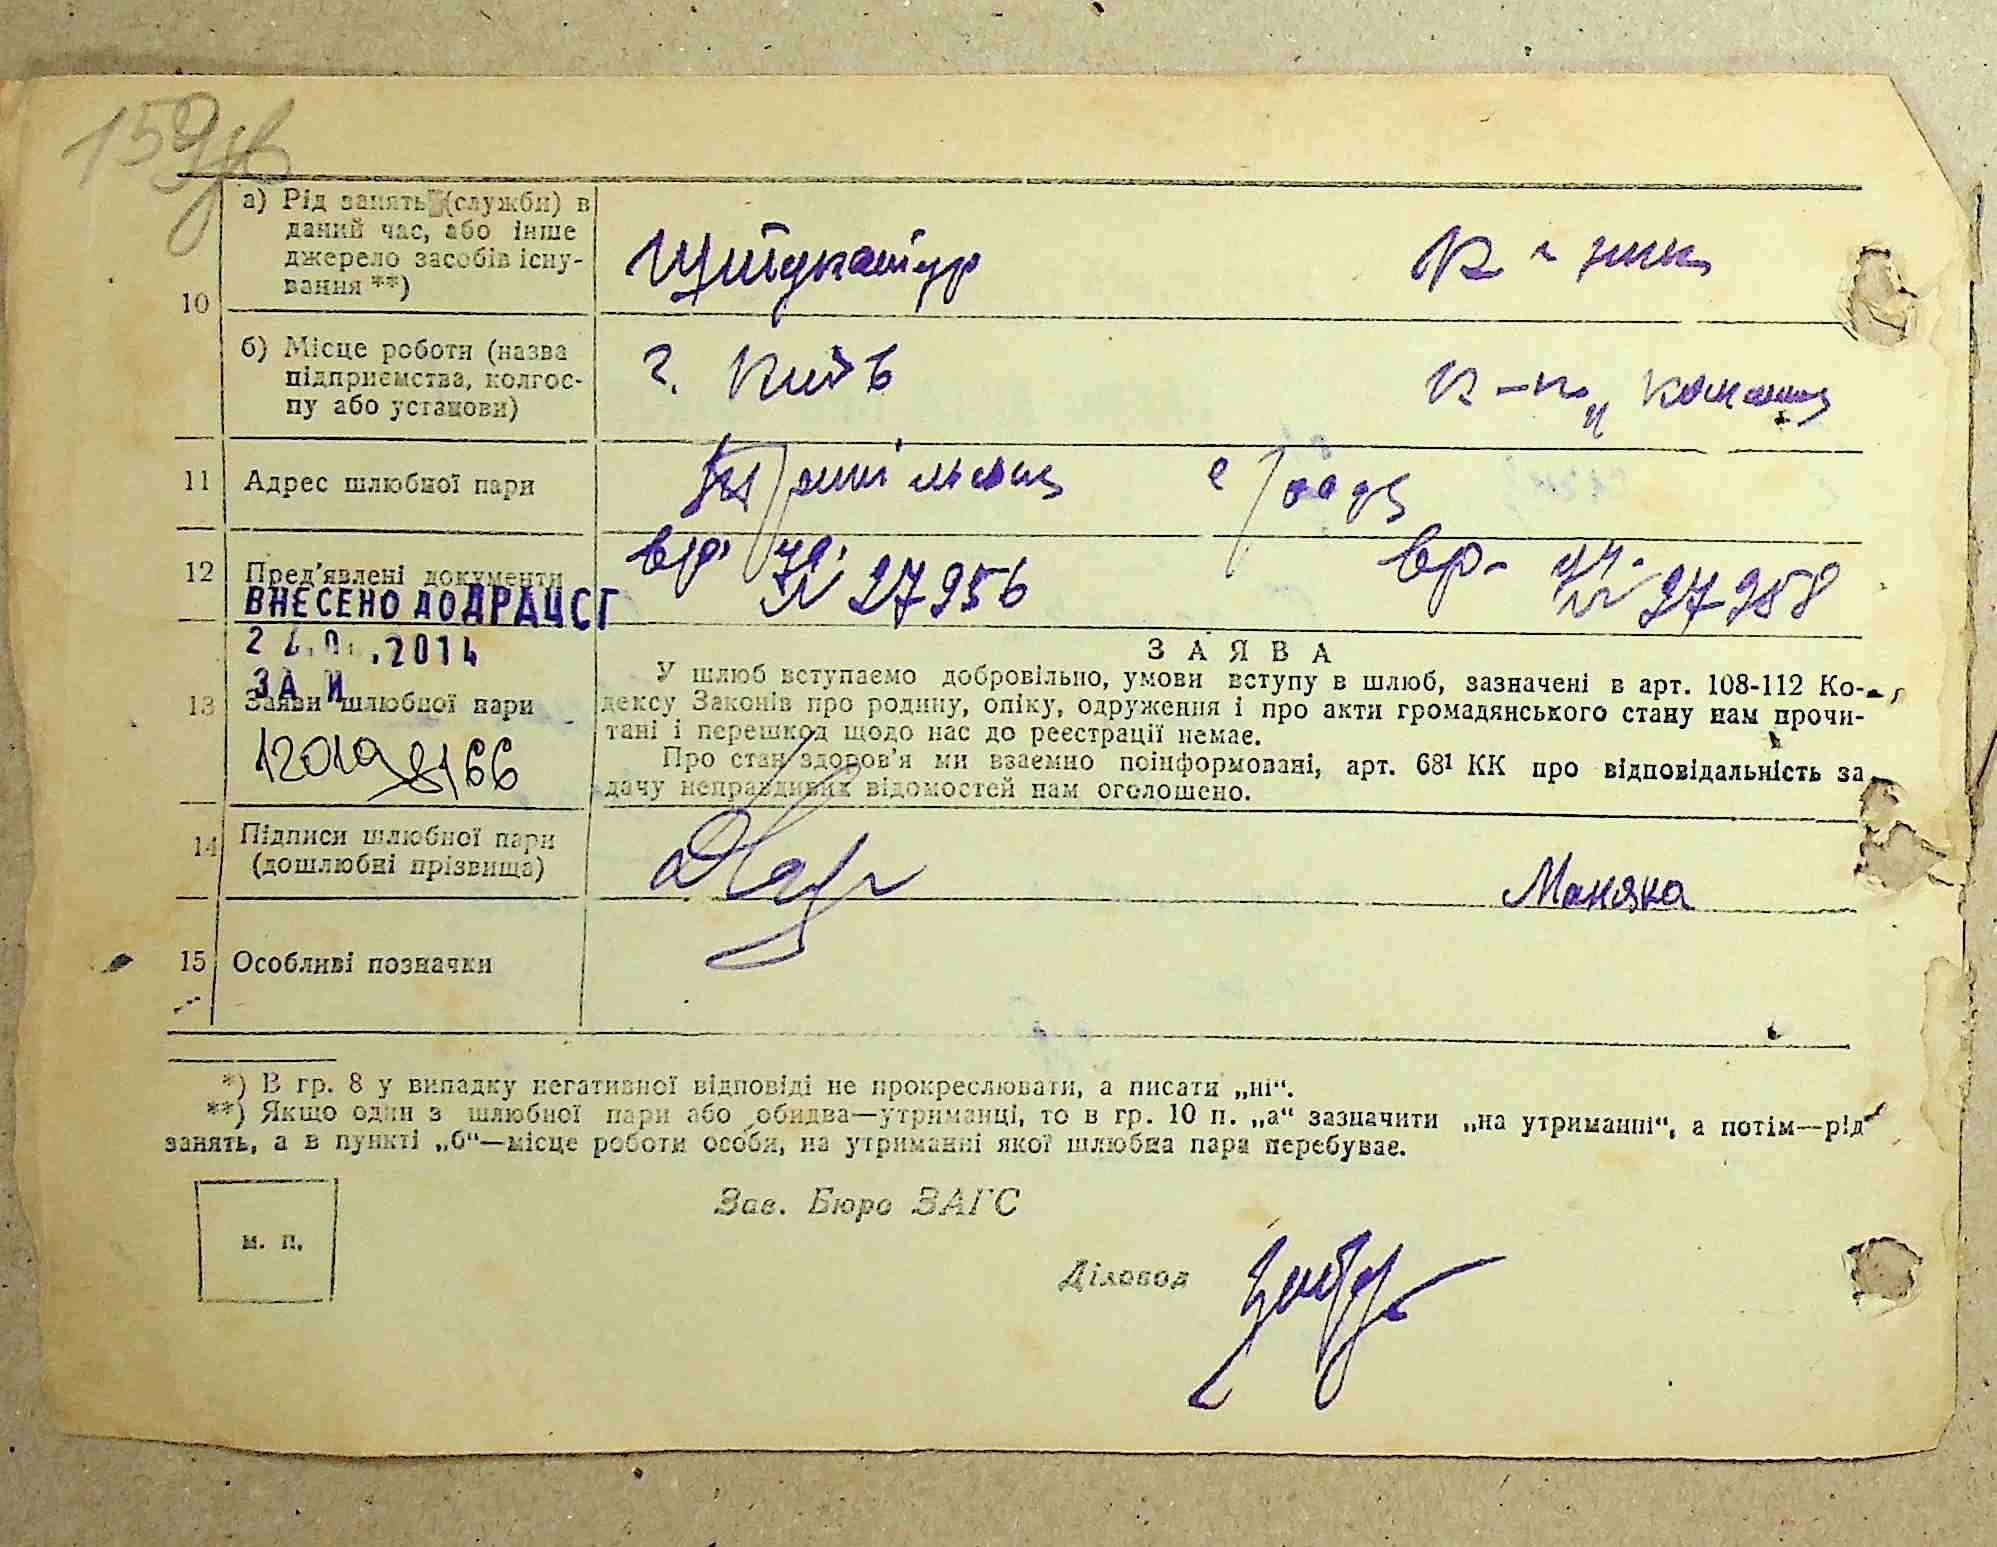 159 зв
10
а) Рід занять (служби) в
даний час, або інше
джерело засобів існу-
вання **)
Штукатур
К-ник
б) Місце роботи (назва
підприємства, колгос-
пу або установи)
г. Київ
к-п „
11
Адрес шлюбної пари
с/рада
12
Пред'явлені документи
вр. уч. № 27956
вр. уч. № 27958
ВНЕСЕНО ДО ДРАЦСГ
.2014
ЗА И
13
Заяви шлюбної пари
ЗАЯВА
У шлюб вступаємо добровільно, умови вступу в шлюб, зазначені в арт. 108-112 Ко-
дексу Законів про родину, опіку, одруження і про акти громадянського стану нам прочи-
тані і перешкод щодо нас до реєстрації немає.
Про стан здоров'я ми взаємно поінформовані, арт. 68¹ КК про відповідальність за
дачу неправдивих відомостей нам оголошено.
14
Підписи шлюбної пари
(дошлюбні прізвища)
Маняка
15
Особливі позначки
*) В гр. 8 у випадку негативної відповіді не прокреслювати, а писати „ні“.
**) Якщо один з шлюбної пари або обидва—утриманці, то в гр. 10 п. „а“ зазначити „на утриманні“, а потім—рід
занять, а в пункті „б“—місце роботи особи, на утриманні якої шлюбна пара перебуває.
м. п.
Зав. Бюро ЗАГС
Діловод